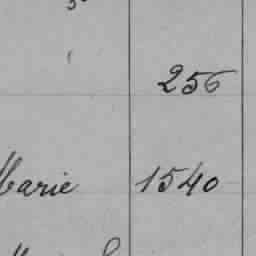 256
Marie 1540